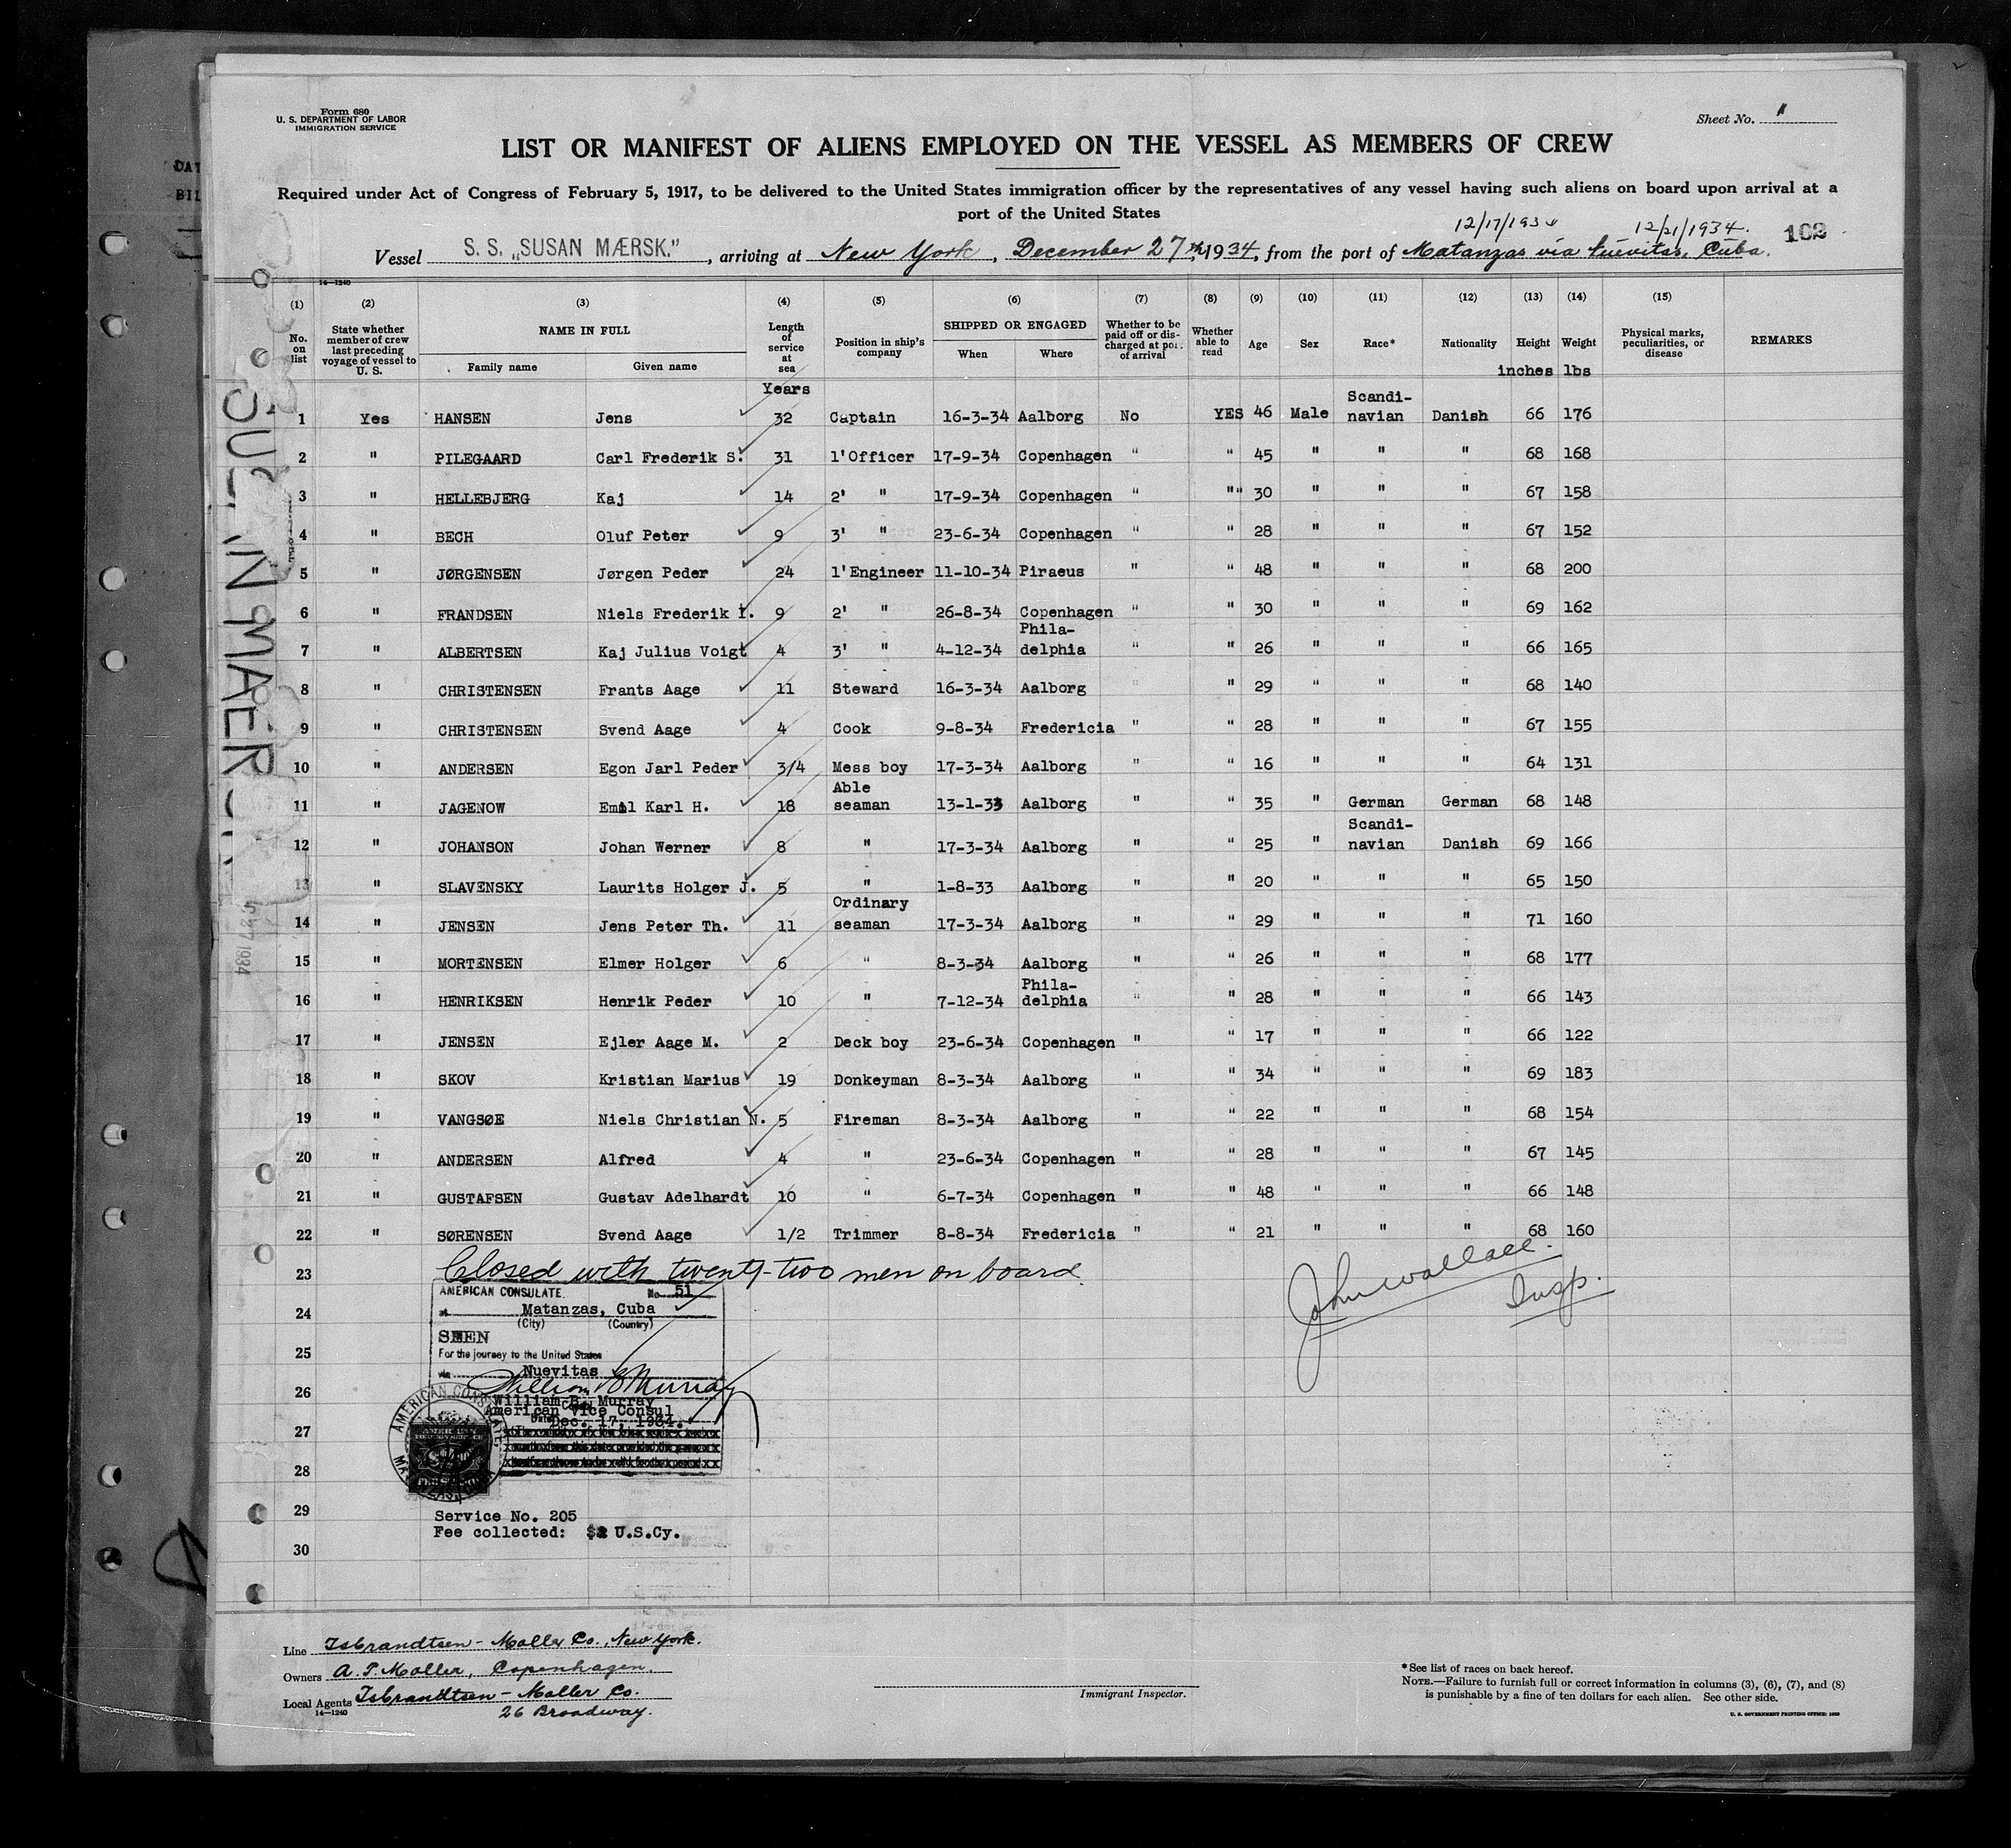 Form 680
U. S. DEPARTMENT OF LABOR
IMMIGRATION SERVICE
Sheet No. 1
LIST OR MANIFEST OF ALIENS EMPLOYED ON THE VESSEL AS MEMBERS OF CREW
Required under Act of Congress of February 5, 1917, to be delivered to the United States immigration officer by the representatives of any vessel having such aliens on board upon arrival at a
port of the United States
12/17/1934 12/21/1934. 102
Vessel S. S. „SUSAN MÆRSK.", arriving at New York, December 27th, 1934, from the port of Matanzas via Nuevitas, Cuba.
14—1240
(1) (2) (3) (4) (5) (6) (7) (8) (9) (10) (11) (12) (13) (14) (15)
No. on list State whether member of crew last preceding voyage of vessel to U. S. NAME IN FULL Family name Given name Length of service at sea Position in ship's company SHIPPED OR ENGAGED When Where Whether to be paid off or discharged at port of arrival Whether able to read Age Sex Race* Nationality Height Weight Physical marks, peculiarities, or disease REMARKS
Years inches lbs
1 Yes HANSEN Jens 32 Captain 16-3-34 Aalborg No YES 46 Male Scandi-navian Danish 66 176
2 " PILEGAARD Carl Frederik S. 31 1'Officer 17-9-34 Copenhagen " " 45 " " " 68 168
3 " HELLEBJERG Kaj 14 2' " 17-9-34 Copenhagen " "" 30 " " " 67 158
4 " BECH Oluf Peter 9 3' " 23-6-34 Copenhagen " " 28 " " " 67 152
5 " JØRGENSEN Jørgen Peder 24 1'Engineer 11-10-34 Piraeus " " 48 " " " 68 200
6 " FRANDSEN Niels Frederik I. 9 2' " 26-8-34 Copenhagen " " 30 " " " 69 162
7 " ALBERTSEN Kaj Julius Voigt 4 3' " 4-12-34 Phila-delphia " " 26 " " " 66 165
8 " CHRISTENSEN Frants Aage 11 Steward 16-3-34 Aalborg " " 29 " " " 68 140
9 " CHRISTENSEN Svend Aage 4 Cook 9-8-34 Fredericia " " 28 " " " 67 155
10 " ANDERSEN Egon Jarl Peder 3/4 Mess boy 17-3-34 Aalborg " " 16 " " " 64 131
11 " JAGENOW Emil Karl H. 18 Able seaman 13-1-33 Aalborg " " 35 " German German 68 148
12 " JOHANSON Johan Werner 8 " 17-3-34 Aalborg " " 25 " Scandi-navian Danish 69 166
13 " SLAVENSKY Laurits Holger J. 5 " 1-8-33 Aalborg " " 20 " " " 65 150
14 " JENSEN Jens Peter Th. 11 Ordinary seaman 17-3-34 Aalborg " " 29 " " " 71 160
15 " MORTENSEN Elmer Holger 6 " 8-3-34 Aalborg " " 26 " " " 68 177
16 " HENRIKSEN Henrik Peder 10 " 7-12-34 Phila-delphia " " 28 " " " 66 143
17 " JENSEN Ejler Aage M. 2 Deck boy 23-6-34 Copenhagen " " 17 " " " 66 122
18 " SKOV Kristian Marius 19 Donkeyman 8-3-34 Aalborg " " 34 " " " 69 183
19 " VANGSØE Niels Christian N. 5 Fireman 8-3-34 Aalborg " " 22 " " " 68 154
20 " ANDERSEN Alfred 4 " 23-6-34 Copenhagen " " 28 " " " 67 145
21 " GUSTAFSEN Gustav Adelhardt 10 " 6-7-34 Copenhagen " " 48 " " " 66 148
22 " SØRENSEN Svend Aage 1/2 Trimmer 8-8-34 Fredericia " " 21 " " " 68 160
23 Closed with twenty-two men on board.
John Wallace.
Insp.
AMERICAN CONSULATE. No. 51
24 at Matanzas, Cuba
(City) (Country)
SEEN
25 For the journey to the United States
via Nuevitas
26 William B Murray
William B. Murray
American Vice Consul
Date Dec. 17, 1934.
27
28
29 Service No. 205
Fee collected: $2 U.S.Cy.
30
Line Isbrandtsen - Moller Co., New York.
Owners A. P. Moller, Copenhagen.
Local Agents Isbrandtsen - Moller Co.
14—1240
26 Broadway.
Immigrant Inspector.
*See list of races on back hereof.
NOTE.—Failure to furnish full or correct information in columns (3), (6), (7), and (8)
is punishable by a fine of ten dollars for each alien. See other side.
U. S. GOVERNMENT PRINTING OFFICE: 1929